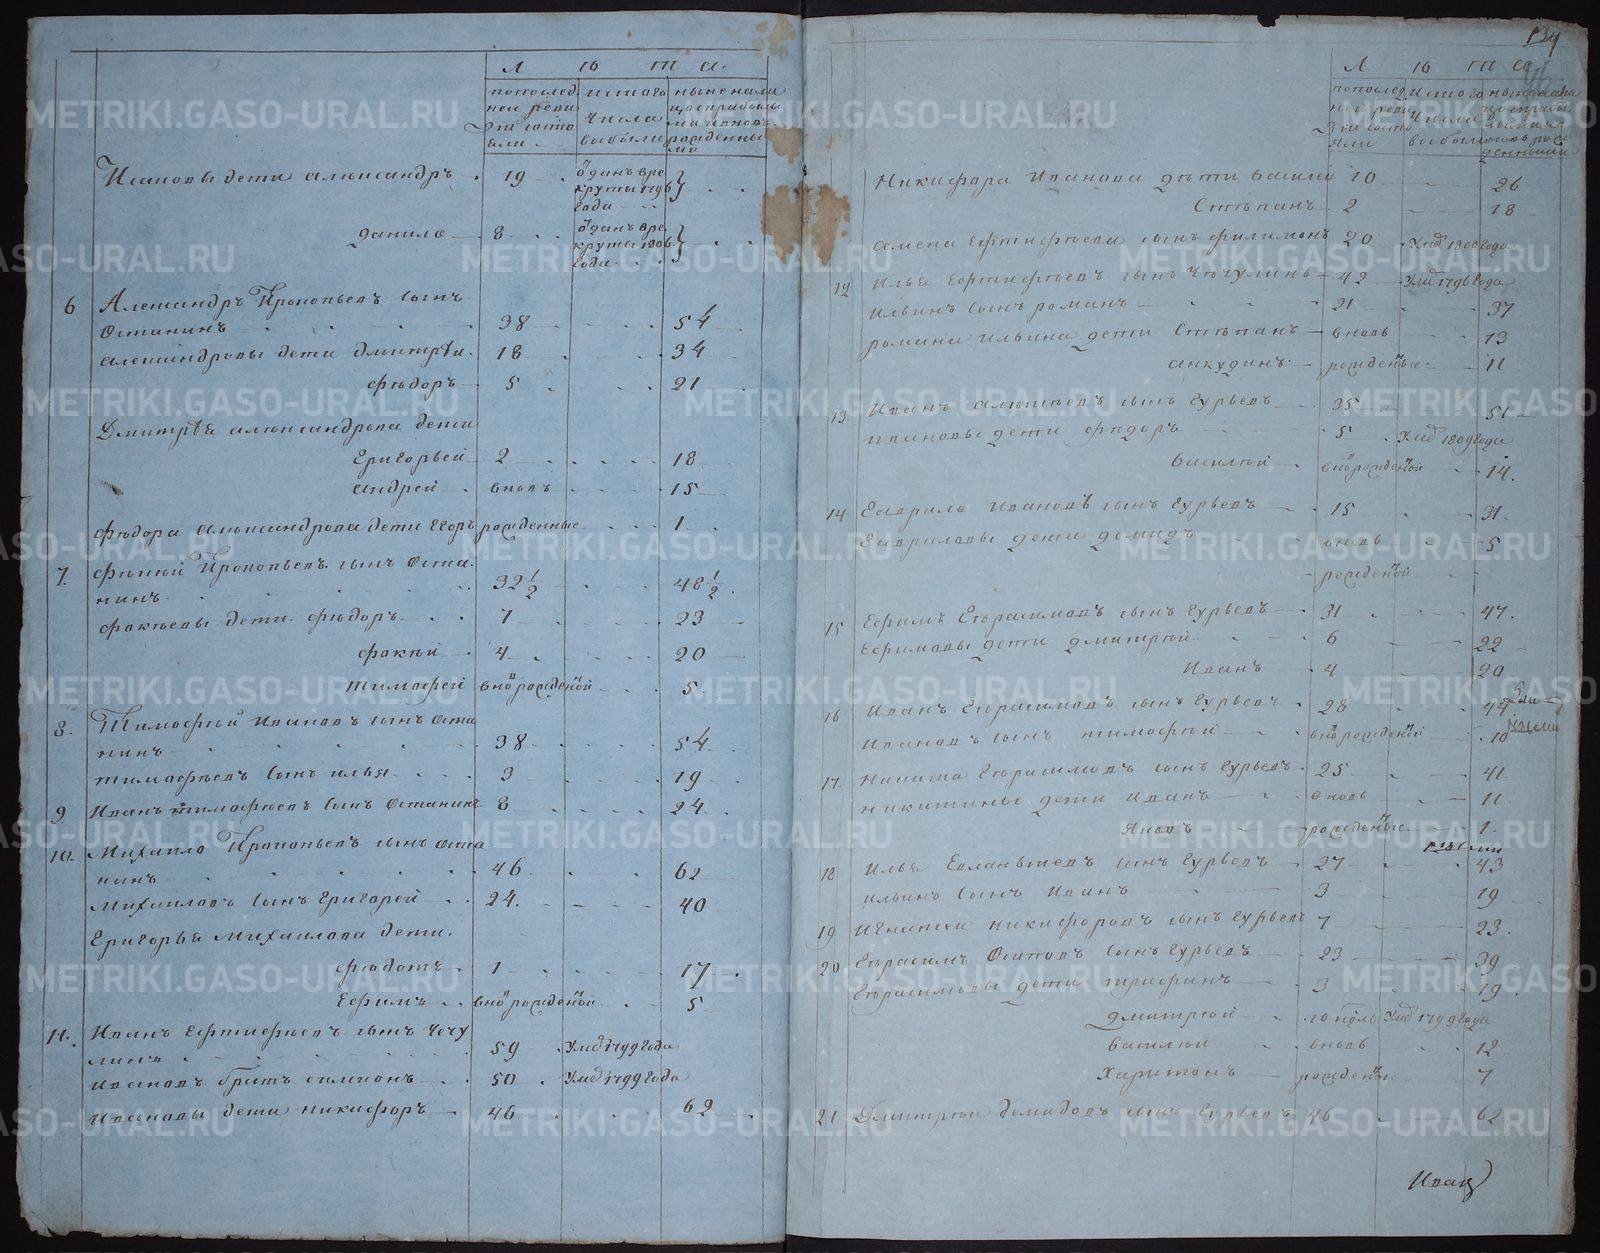 Л ю т а.
попослед
ней реви
зіи состо
яли
истаго
числа
выбыли
ныне нали
цо сприбылы
ми иновь
рожденны
ми
Исаковы дети александръ 19 отданъ вре
круты 1796
года
данило 8 отданъ вре
круты 1806
года
6 Александръ Прокопьевъ сынъ
Останинъ 38 54
александровы дети дмитрѣи 18 34
фюдоръ 5 21
Дмитрѣя александрова дети
Григорьей 2 18
андрей вновь 15
фюдора александрова дети Егоръ рожденные 1
7. Прокопьевъ сынъ Оста
нинъ 32 1/2 48 1/2
дети фюдоръ 7 23
4 20
тимофей вновь рожденой 5
8. Тимофѣй Ивановъ сынъ Оста
нинъ 38 54
тимофѣевъ сынъ илья 3 19
9 Иванъ тимофѣевъ сынъ Останинъ 8 24
10. Михаило Прокопьевъ сынъ Оста
нинъ 46 62
Михаиловъ сынъ Григорей 24. 40
Григорья Михаилова дети.
фюдотъ 1 17
Ефимъ вновь рожденой 5
11. Иванъ Ефтифѣевъ сынъ Чечу
линъ 59 Умд 1799 года
Ивановъ братъ симионъ 50 Умд 1799 года
Ивановы дети никифоръ 46 62
134
Л ю т а
попослед
ней реви
зіи состо
яли
истаго
числа
выбыли
Никифора Иванова дѣти василей 10 26
Стѣпанъ 2 18
семена Ефтифѣева сынъ филимонъ 20 Умд 1800 года
12 Илья Ефтифѣевъ сынъ Чючулинъ 42 Умд 1796 года
Ильинъ сынъ романъ 21 37
романа Ильина дети Стѣпанъ вновь 13
анкудинъ рожденые 11
13. Иванъ алѣксѣевъ сынъ Гурьевъ 35 51
Ивановы дети фюдоръ 5 Умд 1809 года
василѣй вновь рожденой 14.
14 Гаврило Ивановъ сынъ Гурьевъ 15 31
Гавриловы дети демидъ вновь 5
рожденой
15 Ефимъ Гѣрасимовъ сынъ Гурьевъ 31 47.
Ефимовы дети дмитрѣй 6 22
Иванъ 4 20
16 Иванъ Гѣрасимовъ сынъ Гурьевъ 28 44
Ивановъ сынъ тимофѣй вновь рожденой 10
17. Никита Гѣрасимовъ сынъ Гурьевъ 25 41
никитины дети Иванъ вновь 11
Яковъ рожденые 1
18 Илья Евлампьевъ сынъ Гурьевъ 27 43
Ильинъ сынъ Иванъ 3 19
19 Игнатеи никифоровъ сынъ Гурьевъ 7 23.
20 Гѣрасимъ Осиповъ сынъ Гурьевъ 23 39
Гѣрасимовы дети трифанъ 3 19.
дмитрѣй Умд 1799 года
василѣй вновь 12
Харитонъ рожденые 7
21 Дмитрѣи демидовъ сынъ Гурьевъ 46 62
Иван